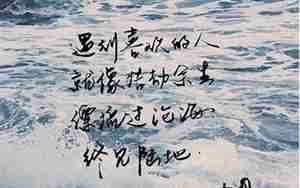 遇到喜欢的人
就像浩劫余生
漂流过沧海
终见陆地.